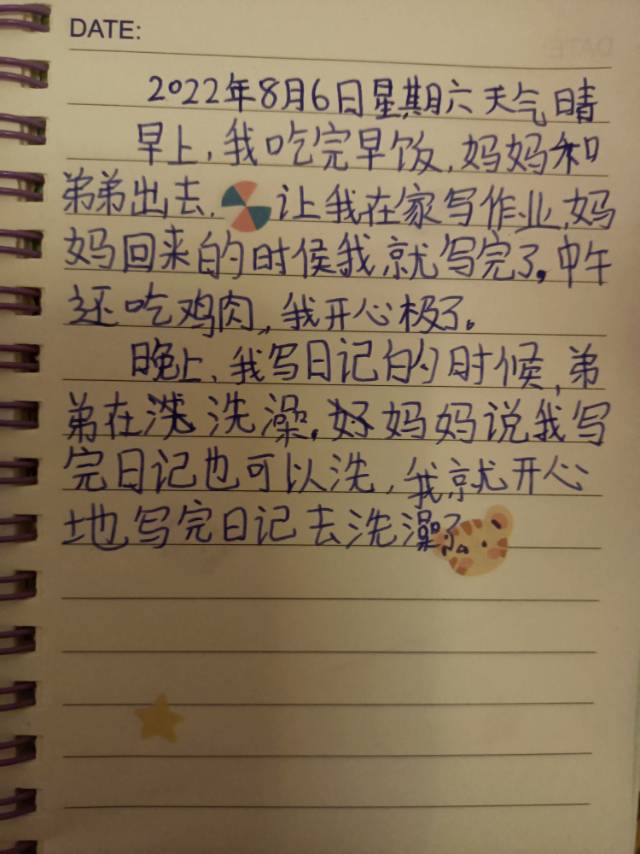 DATE:
2022年8月6日星期六天气晴
早上,我吃完早饭,妈妈和
弟弟出去,让我在家写作业,妈
妈回来的时候我,就写完了。中午
还吃鸡肉,我开心极了。
晚上,我写日记的时候,弟
弟在洗澡,妈妈说我写
完日记也可以洗,我就开心
地写完日记去洗澡了